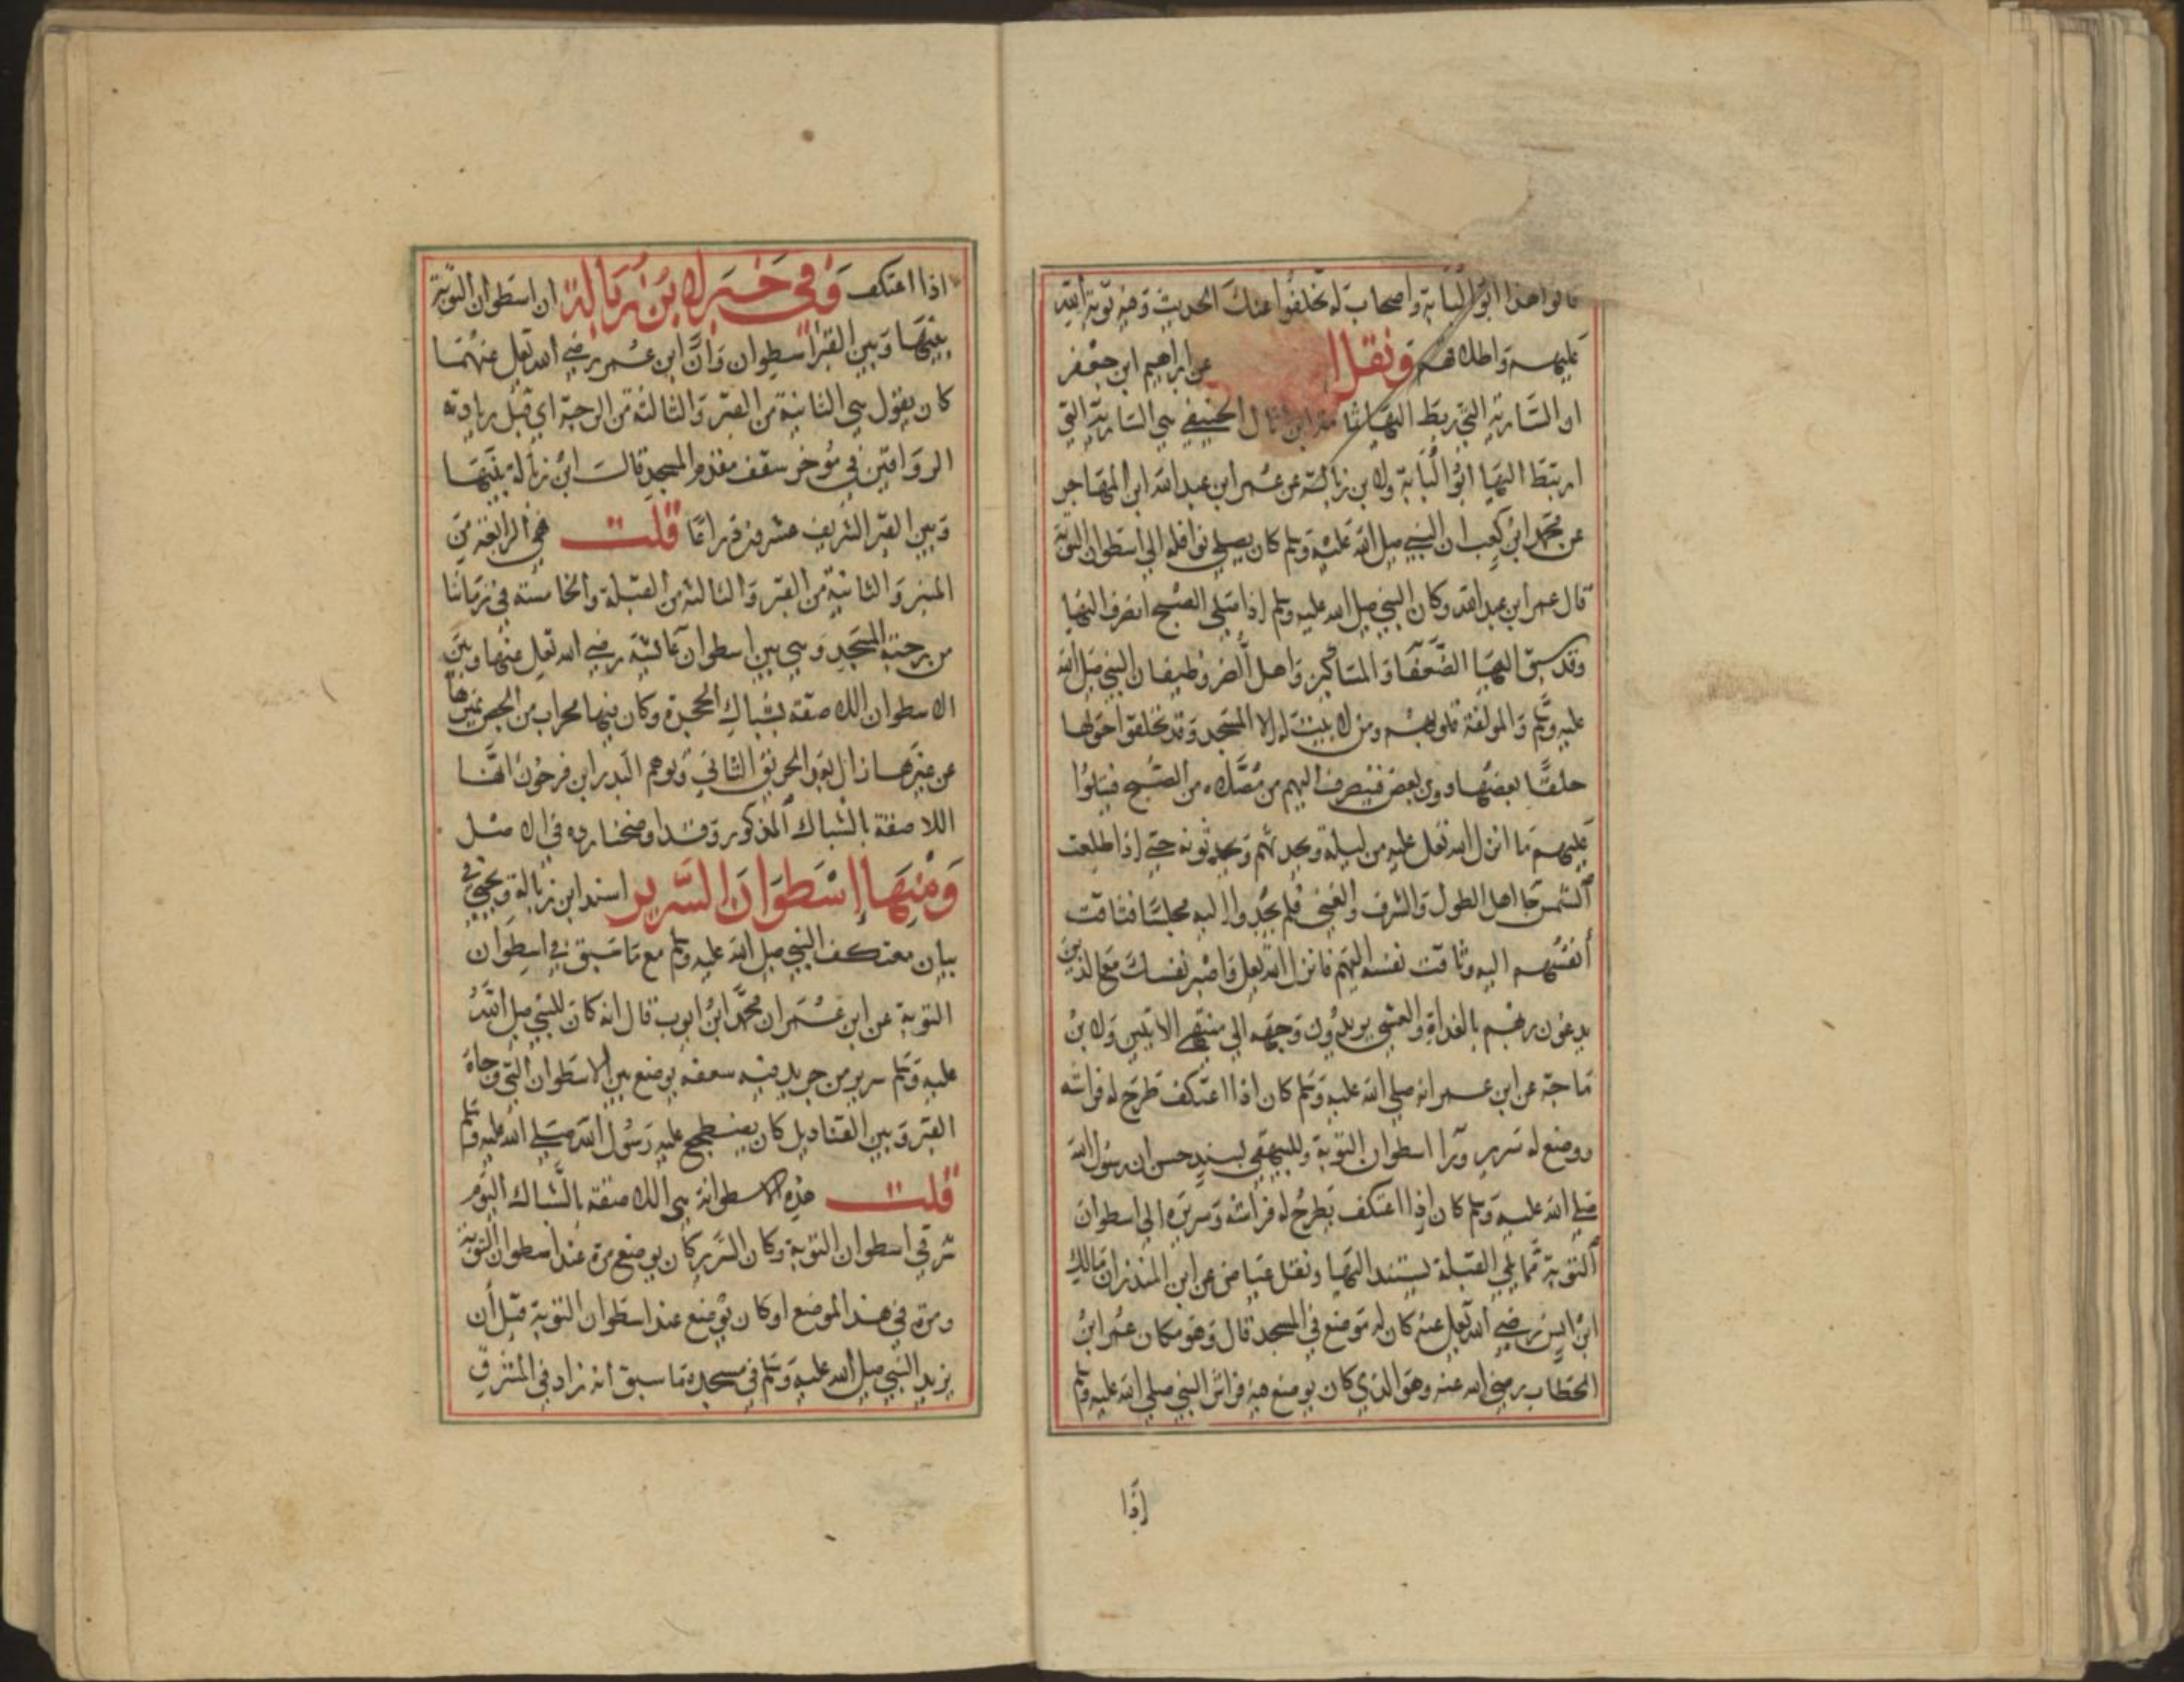 قالوا هذا ابو لبابة واصحاب له تخلفوا عنك الحديث وفيه توبة الله
عليهم واطلاقهم ونقل عن ابراهيم ابن جعفر
ان السارية التي ربط اليها ثمامة ابن اثال الحنيفي هي السارية التي
ارتبط اليها ابو لبابة ولابن زبالة عن عمر ابن عبد الله ابن المهاجر
عن محمد ابن كعب ان النبي صلى الله عليه وسلم كان يصلي نوافله الى اسطوان التوبة
قال عمر ابن عبد الله وكان النبي صلى الله عليه وسلم اذا صلى الصبح انصرف اليها
وقد سبق اليها الضعفا والمساكين واهل الضر وضيفان النبي صلى الله
عليه وسلم والمولفة قلوبهم ومن لا بيت له الا المسجد وقد تحلقوا حولها
حلقا بعضها دون بعض فينصرف اليهم من مصلاه من الصبح فيتلوا
عليهم ما انزل الله تعلى عليه من ليلته ويحدثهم ويحدثونه حتى اذا طلعت
الشمس جا اهل الطول والشرف والغنى فلم يجدوا اليه مجلسا فتاقت
انفسهم اليه وتاقت نفسه اليهم فانزل الله تعلى واصبر نفسك مع الذين
يدعون ربهم بالغداة والعشي يريدون وجهه الى منتهى الايتين ولابن
ماجة عن ابن عمر انه صلى الله عليه وسلم كان اذا اعتكف طرح له فراشه
ووضع له سرير ورا اسطوان التوبة وللبيهقي بسند حسن ان رسول الله
صلى الله عليه وسلم كان اذا اعتكف يطرح له فراشه وسريره الى اسطوان
التوبة مما يلي القبلة يستند اليها ونقل عياض عن ابن المنذر ان مالك
ابن انس رضي الله تعلى عنه كان له موضع في المسجد قال وهو مكان عمر ابن
الخطاب رضي الله عنه وهو الذي كان يوضع فيه فراش النبي صلى الله عليه وسلم
اذا
اذا اعتكف وفي خبر لابن زبالة ان اسطوان التوبة
بينها وبين القبر اسطوان وان ابن عمر رضي الله تعلى عنهما
كان يقول هي الثانية من القبر والثالثة من الرحبة اي قبل زيادته
الرواقين في موخر سقف مقدم المسجد قالت ابن زبالة بينها
وبين القبر الشريف عشرون ذراعا قلت فهي الرابعة من
المنبر والثانية من القبر والثالثة من القبلة والخامسة في زماننا
من رحبة المسجد وهي بين اسطوان عائشة رضي الله تعلى عنها وبين
الاسطوان اللاصقة بشباك الحجرة وكان فيها محراب من الجص يميزها
عن غيرها زال بعد الحريق الثاني وتوهم البدر ابن فرحون انها
اللاصقة بالشباك المذكور وقد اوضحنا رده في الاصل
ومنها اسطوان السرير اسند ابن زبالة ويحيى في
بيان معتكف النبي صلى الله عليه وسلم مع ما سبق في اسطوان
التوبة عن ابن عمر ان محمد ابن ايوب قال انه كان للنبي صلى الله
عليه وسلم سرير من جريد فيه سعفه يوضع بين الاسطوان التي وجاه
القبر وبين القناديل كان يضطجع عليه رسول الله صلى الله عليه وسلم
قلت هذه الاسطوانة هي اللاصقة بالشباك اليوم
شرقي اسطوان التوبة وكان السرير كان يوضع مرة عند اسطوان التوبة
ومرة في هذا الموضع او كان يوضع عند اسطوان التوبة قبل ان
يزيد النبي صلى الله عليه وسلم في مسجده ما سبق انه زاد في المشرق